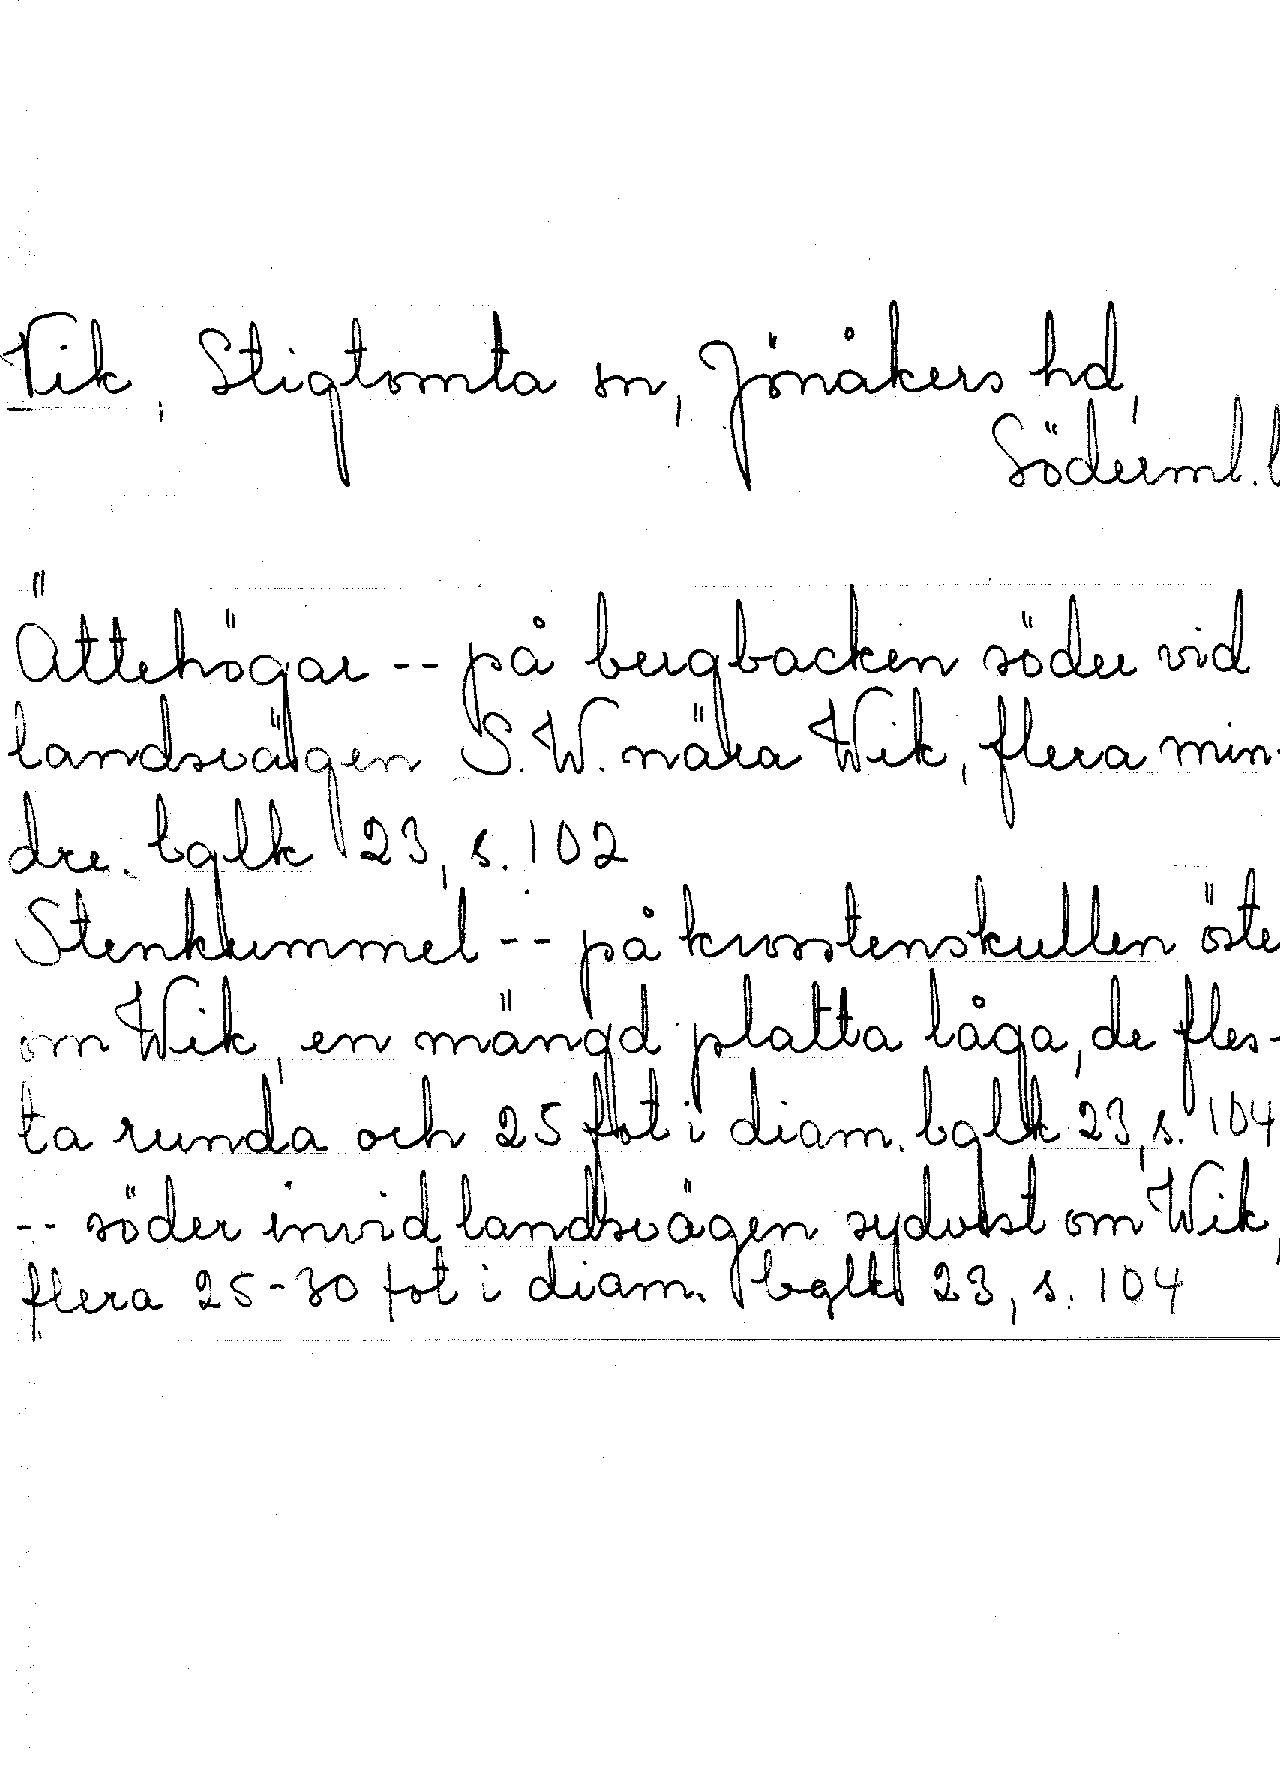 Vik, Stigtomta sn, Jönåkers hd,
Söderml. l
Ättehögar -- på bergbacken söder vid
landsvägen S.W. nära Wik, flera min-
dre. bglk 23, s. 102
Stenkummel -- på krosstenskullen öste
om Wik, en mängd platta låga, de fles-
ta runda och 25 fot i diam. bglk 23, s. 104
-- söder invid landsvägen sydvest om Wik,
flera 25-30 fot i diam. bglk 23, s. 104